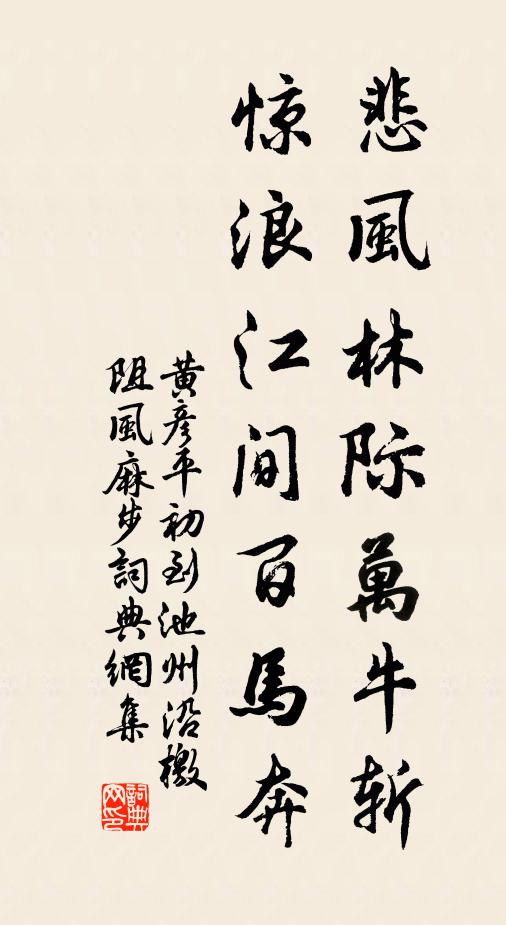 悲風林际萬牛斩
惊浪江间百馬奔
黄彦平初到池州沿檄
阻風麻步詞典網集
詞典网印